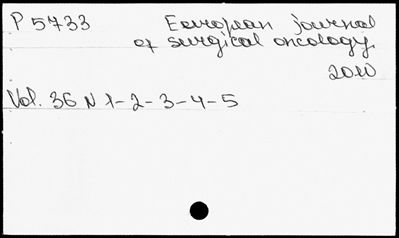 P 5733 European journal
of surgical oncology
2010
Vol. 36 N 1-2-3-4-5